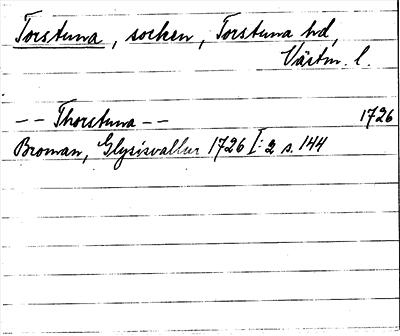 Torstuna, socken, Torstuna hd,
Västm. l.
-- Thorstuna -- 1726
Broman, Glysisvallur 1726 I: 2 s. 144